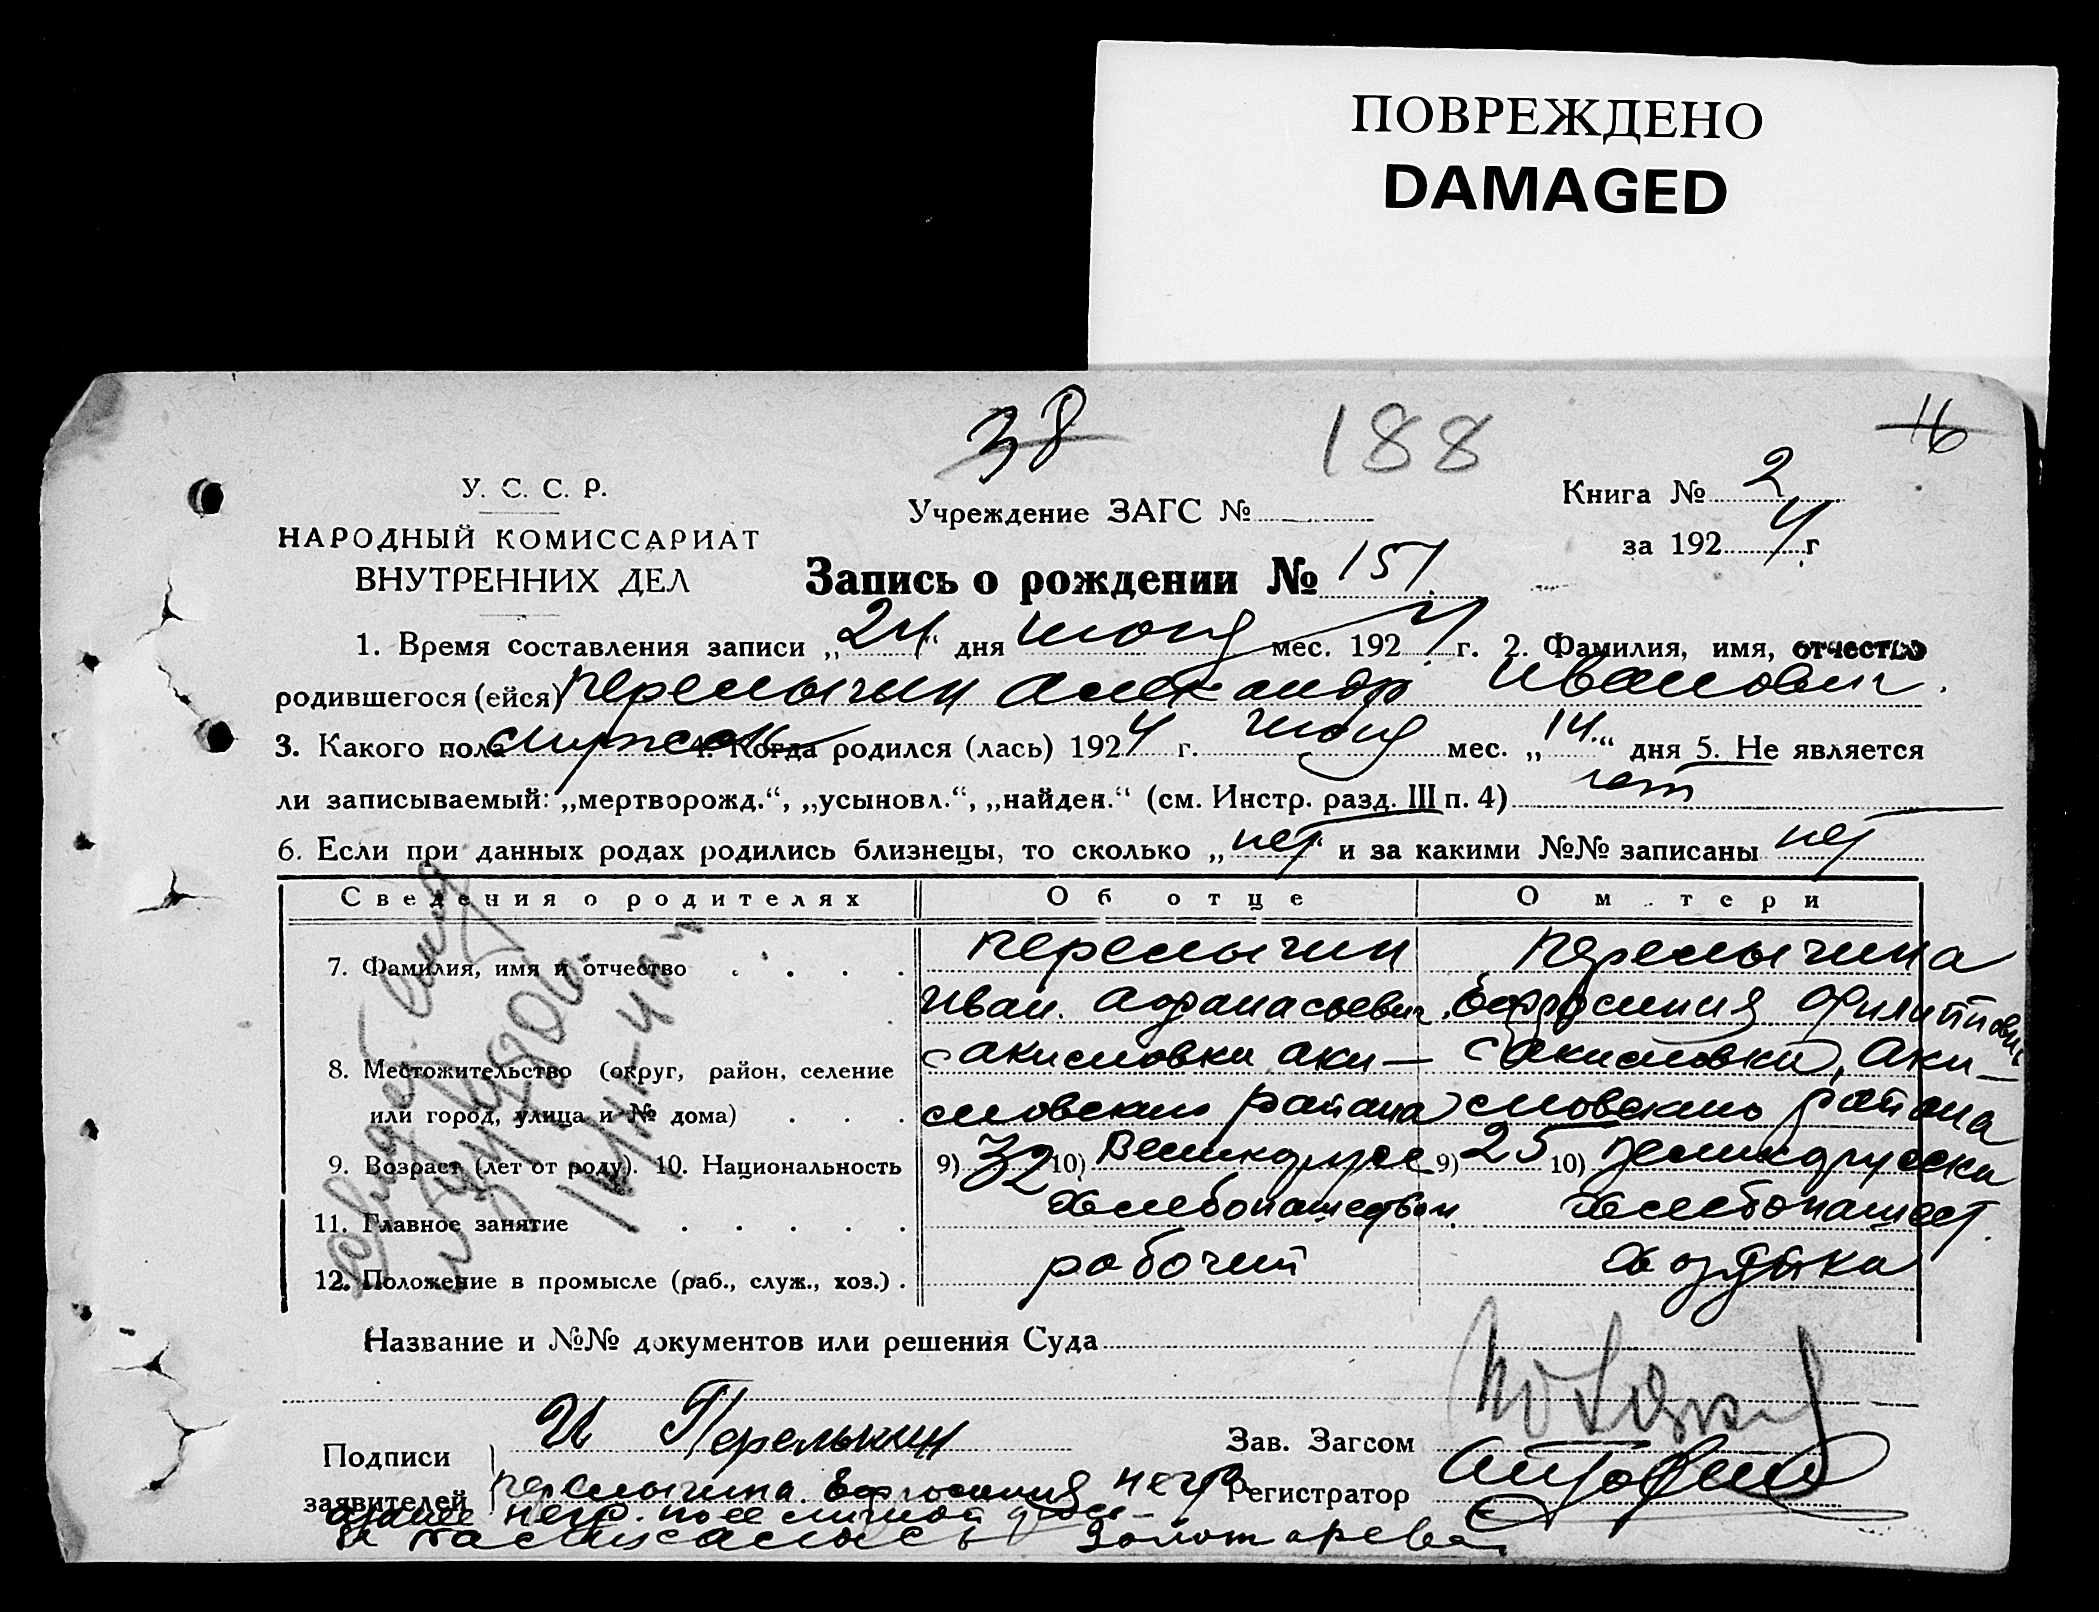 ПОВРЕЖДЕНО
DAMAGED
38 188 16
У. С. С. Р.
НАРОДНЫЙ КОМИССАРИАТ
ВНУТРЕННИХ ДЕЛ
Учреждение ЗАГС №
Книга № 2
за 1924 г.
Запись о рождении № 151.
1. Время составления записи „24“ дня июня мес. 1924 г. 2. Фамилия, имя, отчество
родившегося (ейся) Перелыгин Александр Иванович.
3. Какого пола мужск 4. Когда родился (лась) 1924 г. июня мес. „14“ дня 5. Не является
ли записываемый: „мертворожд.“, „усыновл.“, „найден.“ (см. Инстр. разд. III п. 4) нет
6. Если при данных родах родились близнецы, то сколько „нет“ и за какими №№ записаны нет
Сведения о родителях Об отце О м тери
7. Фамилия, имя и отчество Перелыгин Перелыгина
Иван Афанасьевич Ефросиния Филиппов
8. Местожительство (округ, район, селение с Акимовки Аки- с Акимовки, Аки-
или город, улица и № дома) мовского района мовского района
9. Возраст (лет от роду). 10. Национальность 9) 32 10) Великорусс 9) 25 10) Великорусска
11. Главное занятие хлебопашеством хлебопашест.
12. Положение в промысле (раб., служ., хоз.) рабочий хозяйка
Название и №№ документов или решения Суда
Подписи
заявителей
И Перелыкин
Перелыгина Ефросиния негр
негр. по ее личной
и расписалась Золотарева
Зав. Загсом
Регистратор